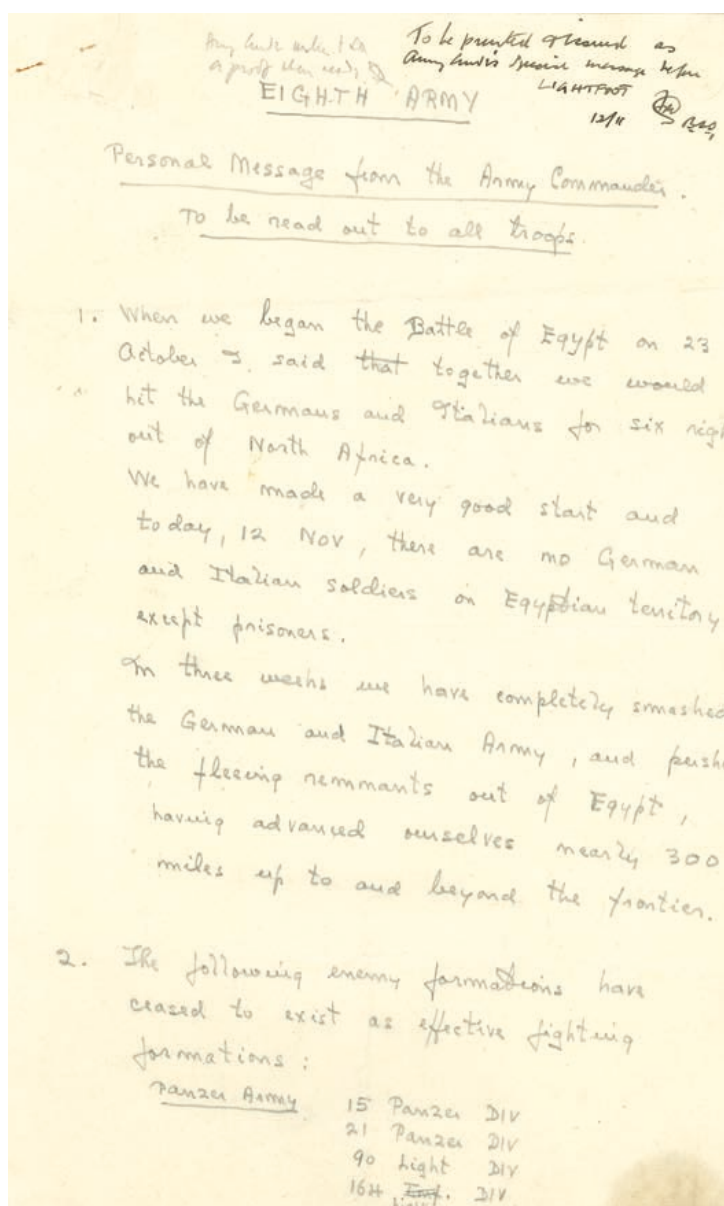 To be printed & issued as
Army Comd's special message before
LIGHTFOOT
12/11
EIGHTH ARMY
Personal Message from the Army Commander.
To be read out to all troops.
1. When we began the Battle of Egypt on 23
October I said that together we would
hit the Germans and Italians for six righ
out of North Africa.
We have made a very good start and
today, 12 Nov, there are no German
and Italian soldiers on Egyptian territory
except prisoners.
In three weeks we have completely smashed
the German and Italian Army, and pushe
the fleeing remnants out of Egypt,
having advanced ourselves nearly 300
miles up to and beyond the frontier.
2. The following enemy formations have
ceased to exist as effective fighting
formations:
Panzer Army 15 Panzer DIV
21 Panzer DIV
90 Light DIV
164 DIV